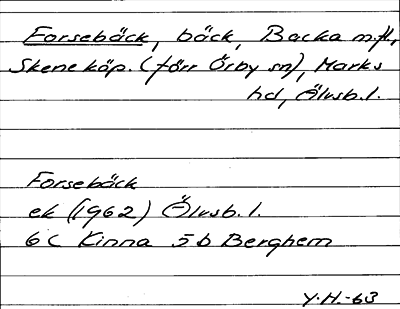 Forsebäck, bäck, Backa m.fl.,
Skene köp. (förr Örby sn), Marks
hd, Älvsb. l.
Forsebäck
ek (1962) Älvsb. l.
6 C Kinna 5 b Berghem
Y.H.-63